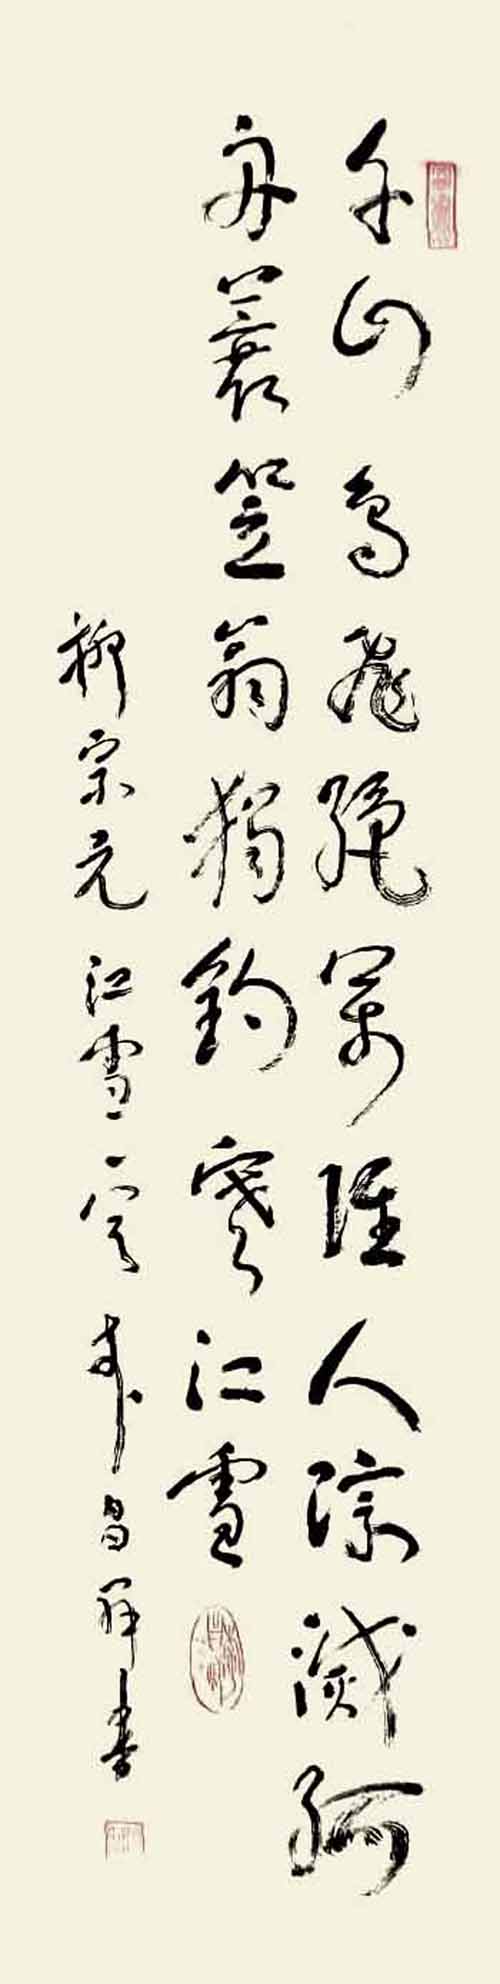 千山鳥飛絶萬径人踪滅孤
舟蓑笠翁獨釣寒江雪
柳宗元江雪一昌書